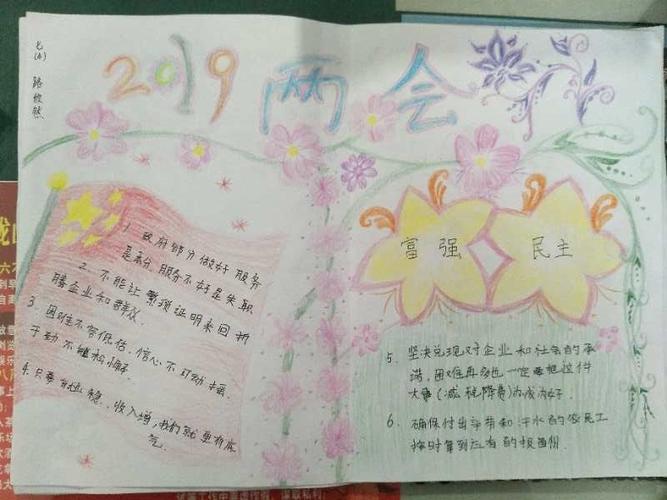 七(6)
路俊然
2019 两会
1. 政府部分做好服务
是本分,服务不好是失职
2. 不能让繁琐证明来回折
腾企业和群众.
3. 困难不容低估,信心不可动摇,
干劲不能松懈
4. 只要就业稳、收入增,我们就更有底
气.
富强
民主
5. 坚决兑现对企业和社会的承
诺,困难再多也一定要把这件
大事(减税降费)办成办好.
6. 确保付出辛劳和汗水的农民工
按时拿到应有的报酬